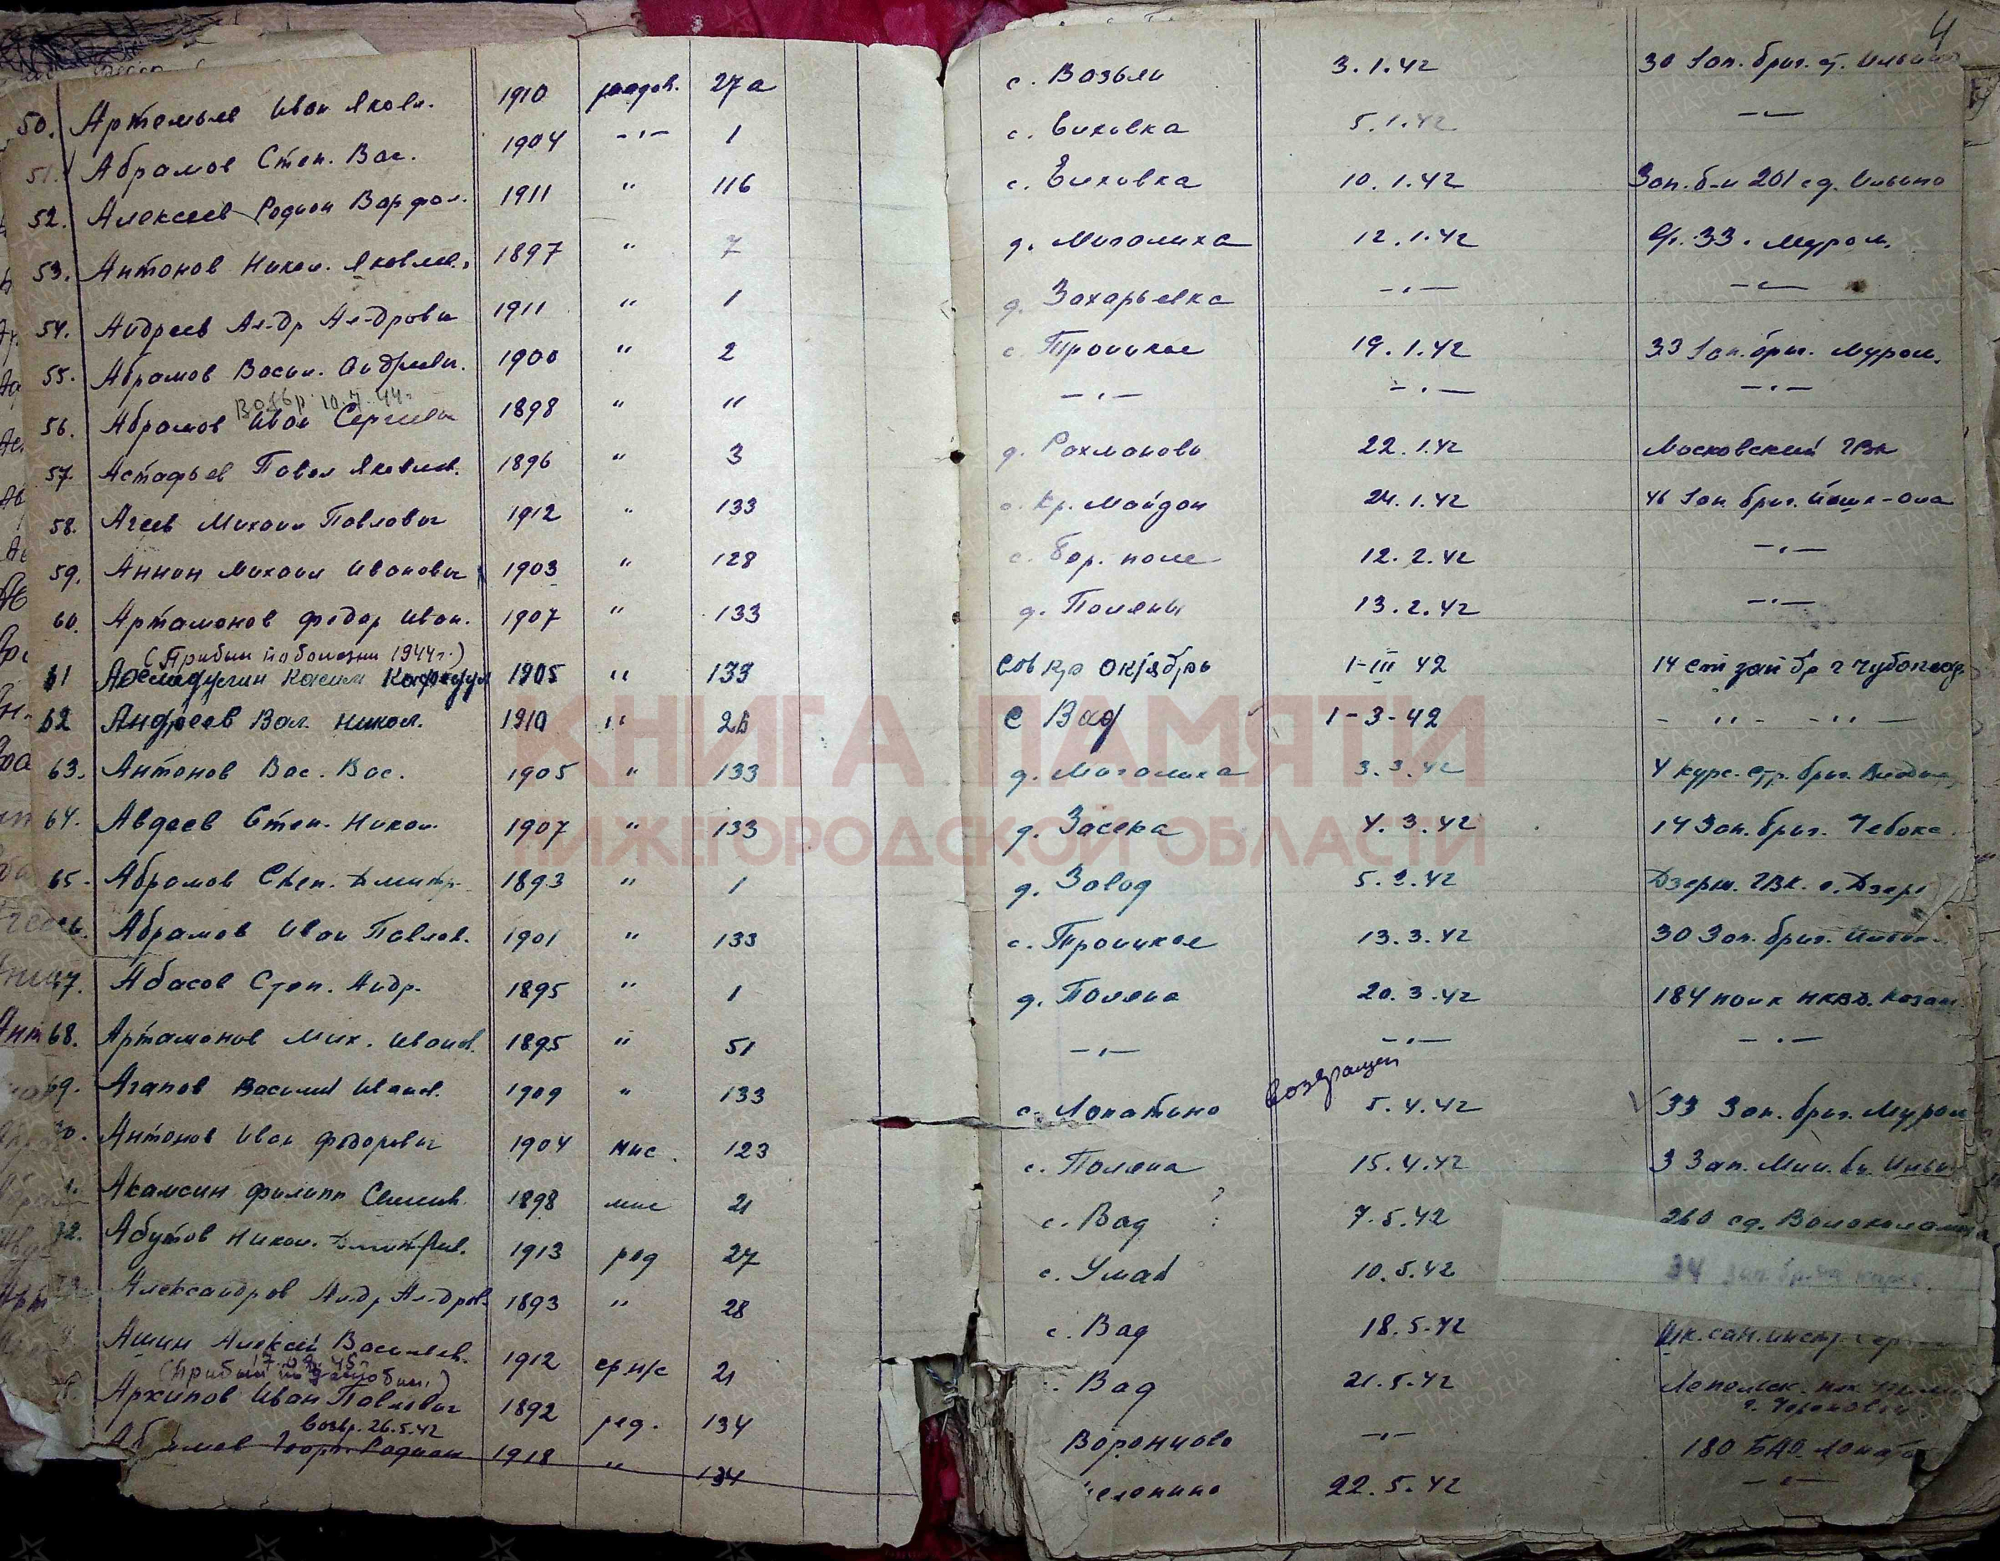 4
50. Артемьев Иван Яковл. 1910 рядов. 27а с. Возьян 3.1.42 30 Зап. бриг. ст. Ильино
51. Абрамов Степ. Вас. 1904 -"- 1 с. Лиховка 5.1.42 -"-
52. Алексеев Родион Варфол. 1911 " 116 с. Лиховка 10.1.42 Зап. б-н 201 сд. Ильино
53. Антонов Никол. Яковлев. 1897 " 7 д. Миголиха 12.1.42 33. Муром.
54. Андреев Ал-др Ал-дрович 1911 " 1 д. Захарьевка -"- -"-
55. Абрамов Васил. Андреевич. 1900 " 2 с. Троицкое 19.1.42 33 Зап. бриг. Муром.
Возвр. 10.7.44г.
56. Абрамов Иван Сергеевич 1898 " " -"- -"- -"-
57. Астафьев Павел Яковлев. 1896 " 3 д. Рахманово 22.1.42 Московский ГВК
58. Агеев Михаил Павлович 1912 " 133 Кр. Майдан 24.1.42 46 Зап. бриг. Йошк-Ола
59. Аннин Михаил Иванович 1903 " 128 с. Бор. поле 12.2.42 -"-
60. Артамонов Федор Иван. 1907 " 133 д. Поляны 13.2.42 -"-
(Прибыл по болезни 1944г.)
61 Касим 1905 " 133 Октябрь 1-III 42 14 зап бр г
62 Андреев Вал. Никол. 1910 " 2б с Вад 1-3-42 - " - - " -
63. Антонов Вас. Вас. 1905 " 133 д. Миголиха 3.3.42 4 курс. стр. бриг.
64. Авдеев Степ. Никол. 1907 " 133 д. Засека 4.3.42 14 Зап. бриг. Чебокс.
65. Абрамов Степ. Дмитр. 1893 " 1 д. Завод 5.3.42 Дзерж. ГВК. г. Дзерж
66. Абрамов Иван Павлов. 1901 " 133 с. Троицкое 13.3.42 30 Зап. бриг. Ильин.
67. Абасов Степ. Андр. 1895 " 1 д. Поляна 20.3.42 184 полк НКВД. Казань
68. Артамонов Мих. Иванов. 1895 " 51 -"- -"- -"-
возвращен
69. Агапов Василий Иванов. 1909 " 133 с. Лопатино 5.4.42 33 Зап. бриг. Муром
70. Антонов Иван Федорович 1904 мис. 123 с. Поляна 15.4.42 3 Зап. Мин. бн. Ильин
Акамсин Филипп Семенов. 1898 мис 21 с. Вад 7.5.42 260 сд. Волоколамск
72. Абутов Никол. Дмитриев. 1913 ряд 27 с. Умай 10.5.42 34 Зап.
Александров Андр. Ал-дров. 1893 " 28 с. Вад 18.5.42
Ашин Алексей Васильев. 1912 ср н/с 21 Вад 21.5.42
Архипов Иван Павлович 1892 ряд. 134 Воронцово -"- 180 БАО.
возвр. 26.5.42
Абрамов Георг. Родион 1918 " 134 22.5.42 -"-
КНИГА ПАМЯТИ
НИЖЕГОРОДСКОЙ ОБЛАСТИ